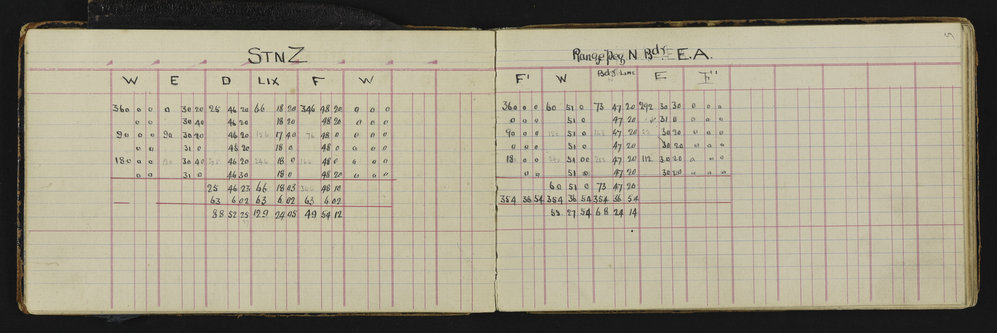 STNZ
W E D LIX F W
360 0 0 0 30 20 25 46 20 66 18 20 346 48 20 0 0 0
0 0 30 40 46 20 18 20 48 20 0 0 0
90 0 0 90 30 20 46 20 156 17 40 76 48 0 0 0 0
0 0 31 0 46 20 18 0 48 0 0 0 0
180 0 0 30 40 46 20 246 18 0 166 48 0 0 0 0
0 0 31 0 46 30 18 0 48 20 0 0 0
25 46 23 66 18 03 346 48 10
63 6 02 63 6 02 63 6 02
88 52 25 129 24 05 49 54 12
5
Range Peg N Bdy E.A.
F' W Bdy Line E F"
360 0 0 60 51 0 73 47 20 292 30 30 0 0 0
0 0 0 51 0 47 20 31 0 0 0 0
90 0 0 150 51 0 163 47 20 22 30 20 0 0 0
0 0 51 0 47 20 30 20 0 0 0
18 0 0 240 51 00 47 20 112 30 20 0 0 0
0 0 51 0 47 20 30 00 0 0 0
60 51 0 73 47 20
354 36 54 354 36 54 354 36 54
55 27 54 68 24 14